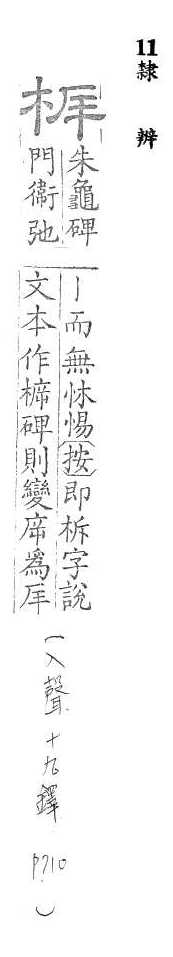 11
隸辨
朱龜碑
門衛弛
丨而無怵惕按即柝字說
文本作㯓碑則變㡿爲
(入聲十九鐸 P710)